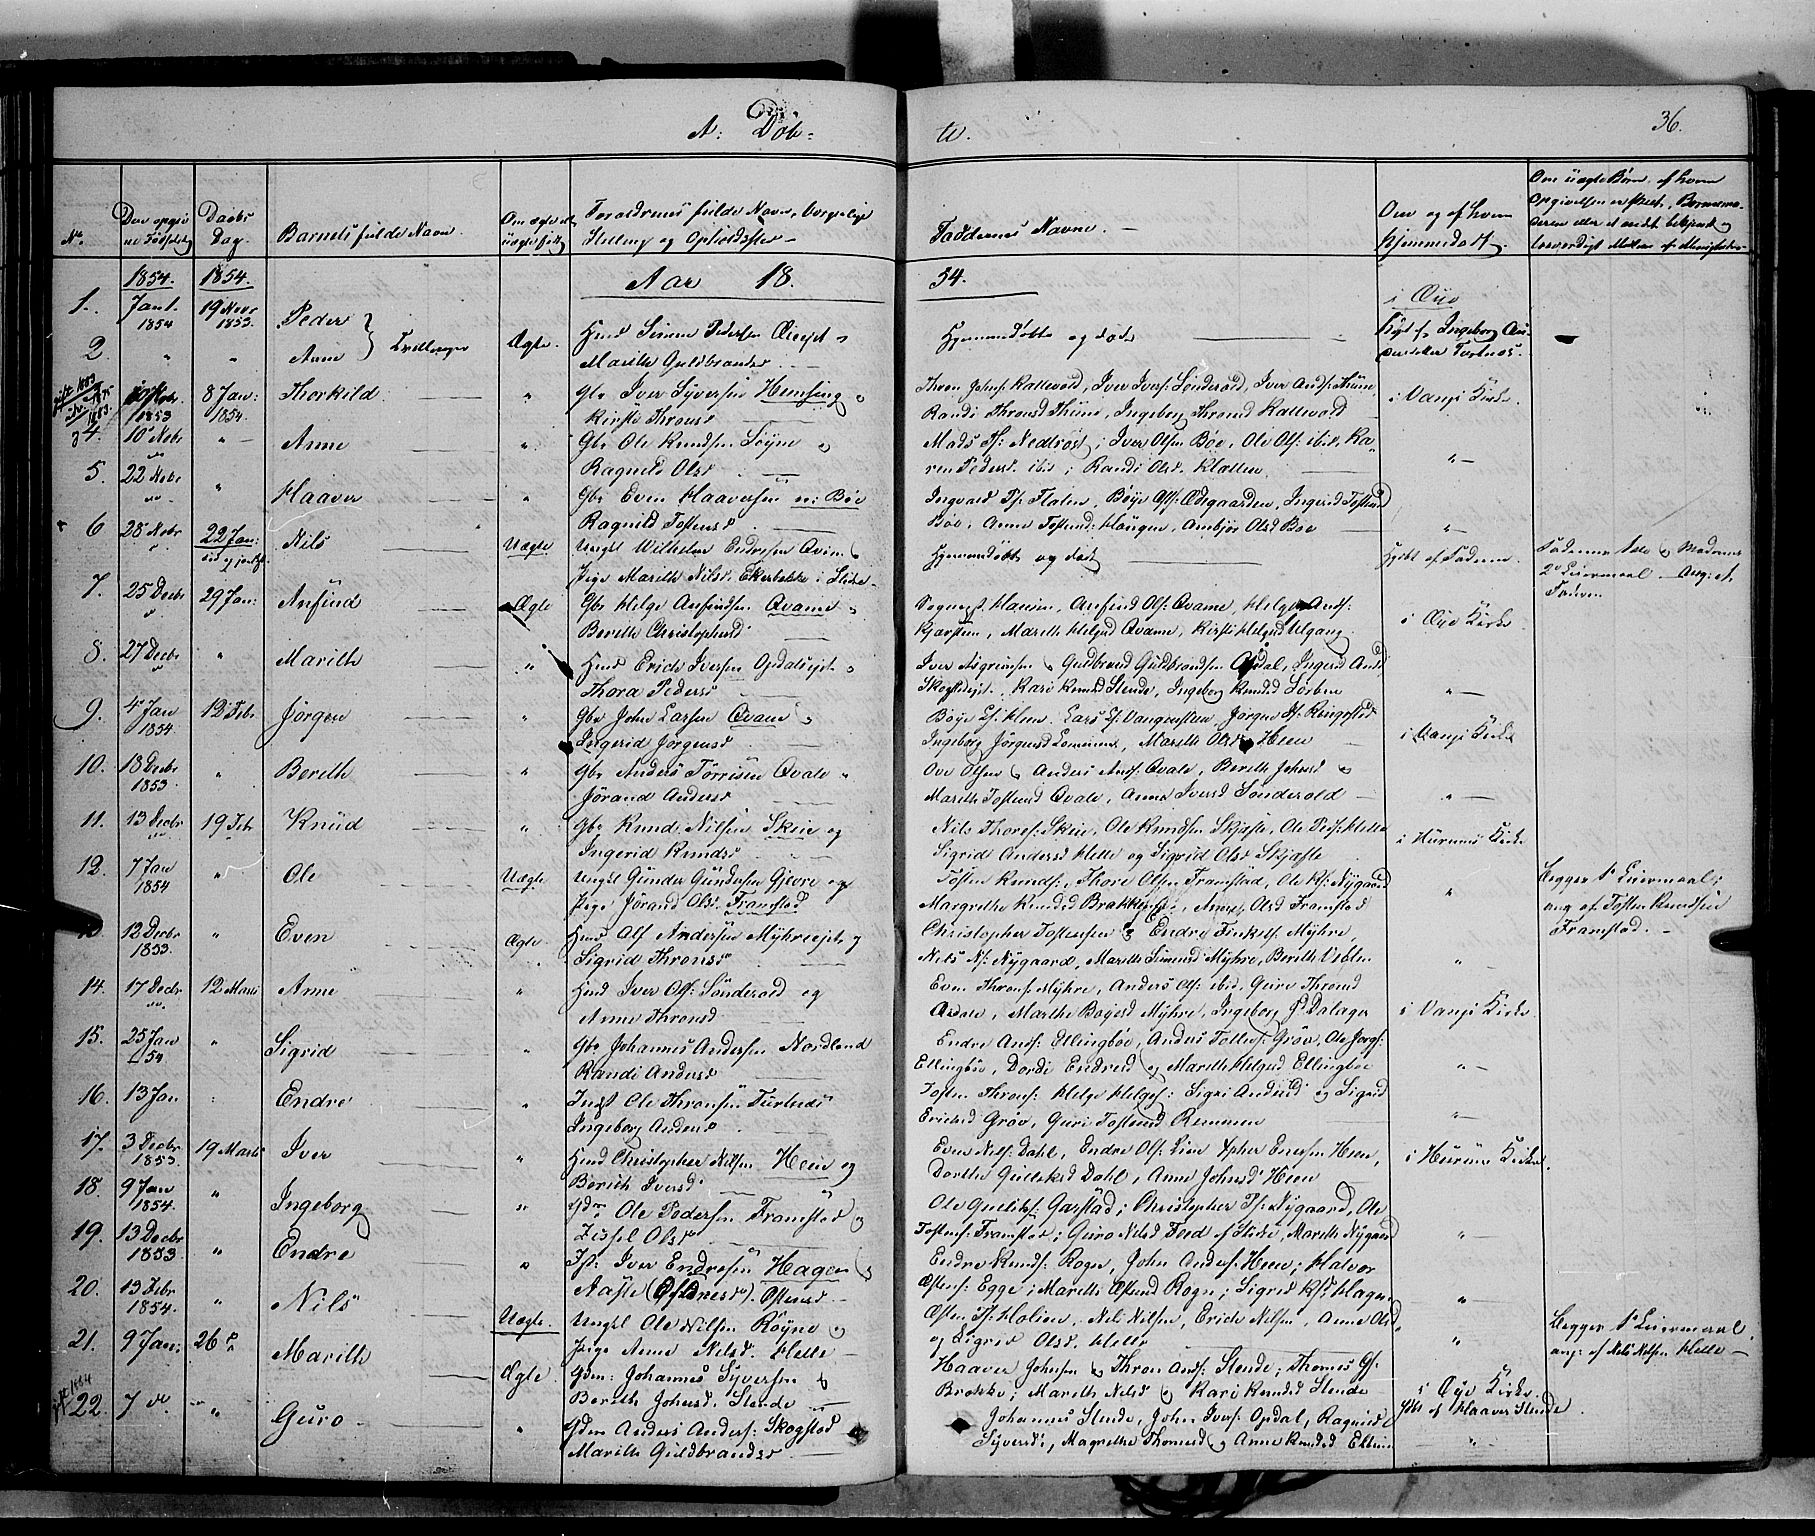 A: Døb-
te.
36.
No.
Den opgiv
ne Fødselsdag
Daabs
Dag.
Barnets fulde Navn.
Om ægte ell
uægte født
Forældrenes fulde Navn, Borgerlige
Stilling og Opholdssted
Faddernes Navne.
Om og af hvem
hjemmedøbt.
Om uægte Børn, af hvem
Opgivelsen er skeet, Barnemo-
deren eller et andet bekjendt og
troværdigt Medlem af Menigheden
1854.
1854.
Aar 18
54.
1.
Jan 1.
1854
19 Novr
1853.
Peder
i Øye
2.
"
"
Anne
Tvillinger
Ægte.
Hmd Simen Pedersen Øieejet og
Marith Guldbrandsd
Hjemmedøbte og døde
hjdt af Ingeborg An-
dersdatter Turtnes.
gift 1883
1853
8 Jan:
1854.
Thorkild
"
Gbr Iver Syversen Hemsing og
Kirsti Thronsd
Thron Johns: Kattevold, Iver Ivers: Sønderold, Iver Ands: Thune
Randi Thronsd Thune, Ingeborg Thronsd Kattevold
i Vangs Kirke.
4.
10 Nobr
"
Anne
"
Gbr Ole Knudsen Søyne og
Ragnild Olsd
Mads Ps: Nedrøst, Iver Olsen Bøe, Ole Ols: ibid, Ka-
ren Pedersd. ibid; Randi Olsd. Kløtten
"
5.
22 Nobr
"
Haaver
"
Gbr Even Haaversen n: Bøe
Ragnild Tostensd
Ingvald Ps: Floten, Bøye Ols: Ødegaarden, Ingerid Tostensd
Bøe, Anne Tostensd Haugen, Ambjør Olsd Bøe
"
6
28 Nobr
22 Jan:
Nils
Uægte
Ungkl Wilhelm Endresen Qvien og
Pige Marith Nilsd. Ekerbakke i Slidre
Hjemmedøbt og død
Hjdbt af Faderen
Faderens 1ste og Moderens
2de Leiermaal. Ang: af
Faderen
7.
25 Decbr
29 Jan:
Anfind
Ægte
Gbr Helge Anfindsen Qvame og
Berith Christophersd
Sognepst Hansen, Anfind Ols: Qvame, Helge Ands:
Kjørstein, Marith Helgesd Qvame, Kirsti Helgesd Udgang
i Øye Kirke
8.
27 Decbr
"
Marith
"
Hmd Erich Iversen Opdalsejet og
Thora Pedersd
Iver Asgrimsen og Guldbrand Guldbrandsen Opdal, Ingerid Ands
Skogstadejet, Kari Knudsd Stende, Ingeborg Knudsd Sørben
"
9.
4 Jan
1854
12 Febr
Jørgen
"
Gbr John Larsen Qvame og
Ingerid Jørgensd
Bøye Es: Heen, Lars Es: Vangensteen, Jørgen Ps: Ringestad
Ingeborg Jørgensd Lommen, Marith Olsd Heen
i Vangs Kirke
10.
18 Decbr
1853
"
Berith
"
Gbr Anders Torrisen Qvale og
Jørand Andersd
Ove Olsen og Anders Ands: Qvale, Berith Johnsd og
Marith Tostensd Qvale, Anne Iversd Sønderold
"
11.
13 Decbr
19 Febr
Knud
"
Gbr Knud Nilsen Skeie og
Ingerid Knudsd
Nils Thores: Skeie, Ole Knudsen Skjæste, Ole Peds: Helle
Sigrid Andersd Helle og Sigrid Olsd Skjæste
i Hurums Kirke
12.
7 Jan
1854
"
Ole
Uægte
Ungkl Gunder Gundersen Gjevre og
Pige Jørand Olsd. Framstad
Tosten Knuds:, Thore Olsen Framstad, Ole Ks: Nygaard
Margrethe Knudsd Brakken, Anne Olsd Framstad
"
Begges 1ste Leiermaal;
ang af Tosten Knudsen
Framstad.
12 Decbr
1853
"
Even
Ægte
Hmd Ole Andersen Myhreejet og
Sigrid Thronsd
Christopher Tostensen og Endre Finkels: Myhre,
Nils Ns: Nygaard, Marith Simensd Myhre, Berith Veblen
"
14.
17 Decbr
12 Marts
Anne
"
Hmd Iver Ols: Sønderold og
Anne Thronsd
Even Throns: Myhre, Anders Ols: ibid. Guri Thronsd
Qvale, Marthe Bøyesd Myhre, Ingeborg Pd Dalager
i Vangs Kirke
15.
25 Jan
54
"
Sigrid
"
Gbr Johannes Andersen Nordland
Randi Andersd
Endre Ands: Ellingbøe, Anders Tostens: Grøv, Ole Jørgs:
Ellingbøe, Dordi Endresd og Marith Helgesd Ellingbøe
"
16.
13 Jan
"
Endre
"
Inst Ole Thronsen Turtnes
Ingeborg Andersd
Tosten Throns: Helge Helges: Sigri Andersd og Sigrid
Erichsd Grøv, Guri Tostensd Remmen
"
17.
3 Decbr
1853.
19 Marts
Iver
"
Hmd Christopher Nilsen Heen og
Berith Iversd
Even Nils: Dahl, Endre Ols: Lien, Xpher Enersen Heen,
Dorthe Gulliksd Dahl, Anne Johnsd Heen
i Hurums Kirke
18.
9 Jan
1854.
"
Ingeborg
"
Gdm Ole Pedersen Framstad og
Zissel Olsd
Ole Gulliks: Garstad, Christopher Ps: Nygaard, Ole
Tostens: Framstad; Guro Nilsd Foed af Slidre, Marith Nygaard
"
19.
13 Decbr
1853
"
Endre
"
Ist: Iver Endresen Hagen og
Aaste (Ostnesd). Ostensd
Endre Knuds: Rogne, John Anders: Heen; Halvor
Ostens: Egge; Marith Ostensd Rogn; Sigrid Ksd Hagen
"
20.
13 Febr
1854.
"
Nils
Uægte.
Ungkl Ole Nilsen Røyne og
Pige Anne Nilsd. Helle
Osten Ps: Holien, Nils Nilsen, Erich Nilsen, Anne Olsd,
og Sigrid Olsd. Helle
"
Begges 1ste Leiermaal
ang: af Nils Nilsen Helle
21.
9 Jan:
26 do
Marith
Ægte.
Gdm: Johannes Syversen og
Berith Johnsd. Stende
Haaver Johnsen og Thron Ands: Stende; Thomes Gs:
Brokke; Marith Nilsd og Kari Knudsd Stende
i Øye Kirke.
hjdbt af Haaver Stende
gift 1884
22.
7 do
"
Guro
"
Gdm Anders Anders: Skogstad
Marith Guldbrandsd
Johannes Stende, John Ivers: Opdal, Ragnild
Syversd; Magrethe Thomesd og Anne Knudsd Eltun
"